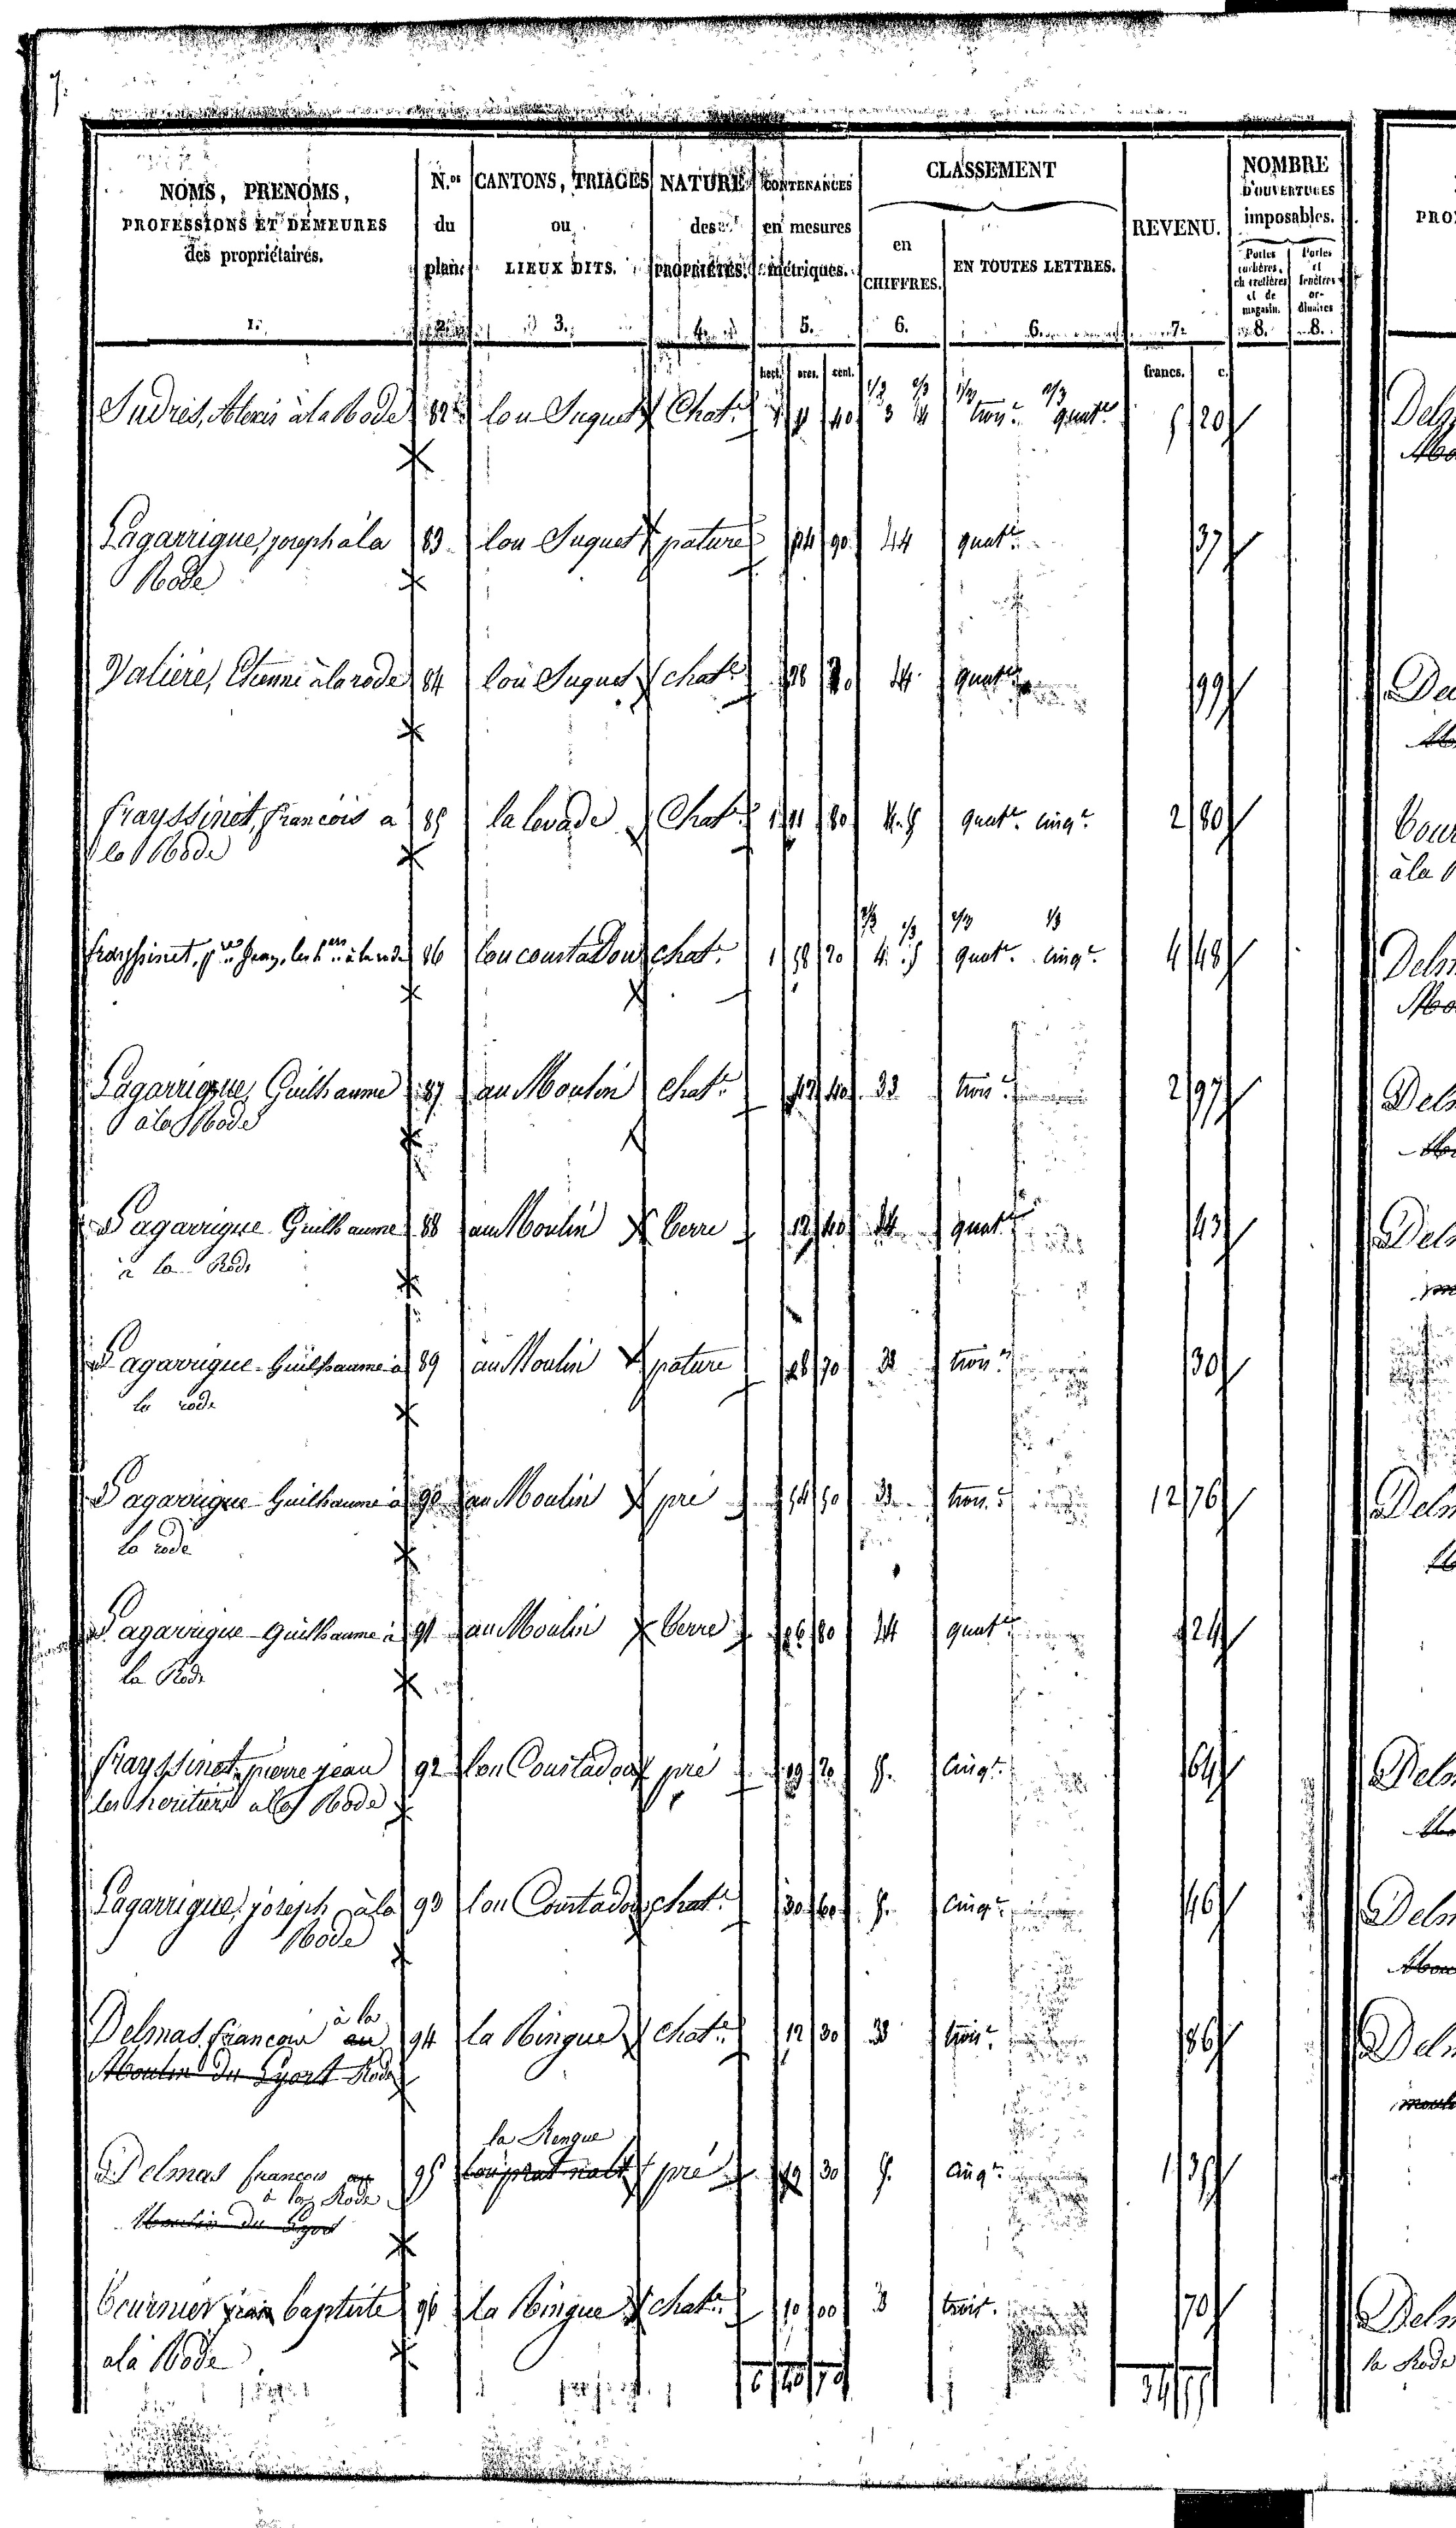 7.
NOMS, PRENOMS, PROFESSIONS ET DEMEURES des propriétaires. 1.
N.os du plan. 2.
CANTONS, TRIAGES ou LIEUX DITS. 3.
NATURE des PROPRIÉTÉS. 4.
CONTENANCES en mesures métriques. 5.
CLASSEMENT
en CHIFFRES. 6.
EN TOUTES LETTRES. 6.
REVENU. 7.
NOMBRE D'OUVERTURES imposables.
Portes cochères, charretières et de magasin. 8.
Portes et fenêtres ordinaires 8.
PRO
hect. ares. cent. francs. c.
1/3 2/3 1/3 2/3
Sudres, Alexis à la Rode 82 lou Suquet Chat.e 1 11 40 3 4 trois.e quat.e 5 20
Lagarrigue, joseph à la 83 lou Suquet pature 24 90 4 quat.e 37
Rode
Valière, Etienne à la rode 84 lou Suquet chat.e 28 4 quat.e 99
frayssinet, francois a 85 la levade Chat.e 1 11 80 4. 5 quat.e cinq.e 2 80
la Rode
2/3 1/3 2/3 1/3
frayssinet, les h.ers à la rode 86 lou coustadou chat.e 1 58 20 4. 5 quat.e cinq.e 4 48
Lagarrigue, Guilhaume 87 au Moulin chat.e 42 40 3 trois.e 2 97
à la Rode
Lagarrigue Guilhaume 88 au Moulin terre 12 40 4 quat.e 43
à la Rode
Lagarrigue Guilhaume à 89 au Moulin pature 70 3 trois.e 30
la rode
Lagarrigue Guilhaume à 90 au Moulin pré 54 50 3 trois.e 12 76
la rode
Lagarrigue Guilhaume à 91 au Moulin terre 80 4 quat.e 24
la Rode
frayssinet pierre jean 92 lou Coustadou pré 20 5. cinq.e 64
les heritiers a la Rode
Lagarrigue, joseph à la 93 lou Coustadou chat.e 30 60 5. cinq.e 46
Rode
à la
Delmas, francois au 94 la Ringue chat.e 12 30 3 trois.e 86
Moulin du Rode
la Rengue
Delmas francois au 95 lou prat nalt pré 19 30 5. cinq.e 1 35
à la Rode
Moulin du
jean baptiste 96 la Ringue chat.e 10 00 3 trois.e 70
a la Rode
6 40 70 34 55